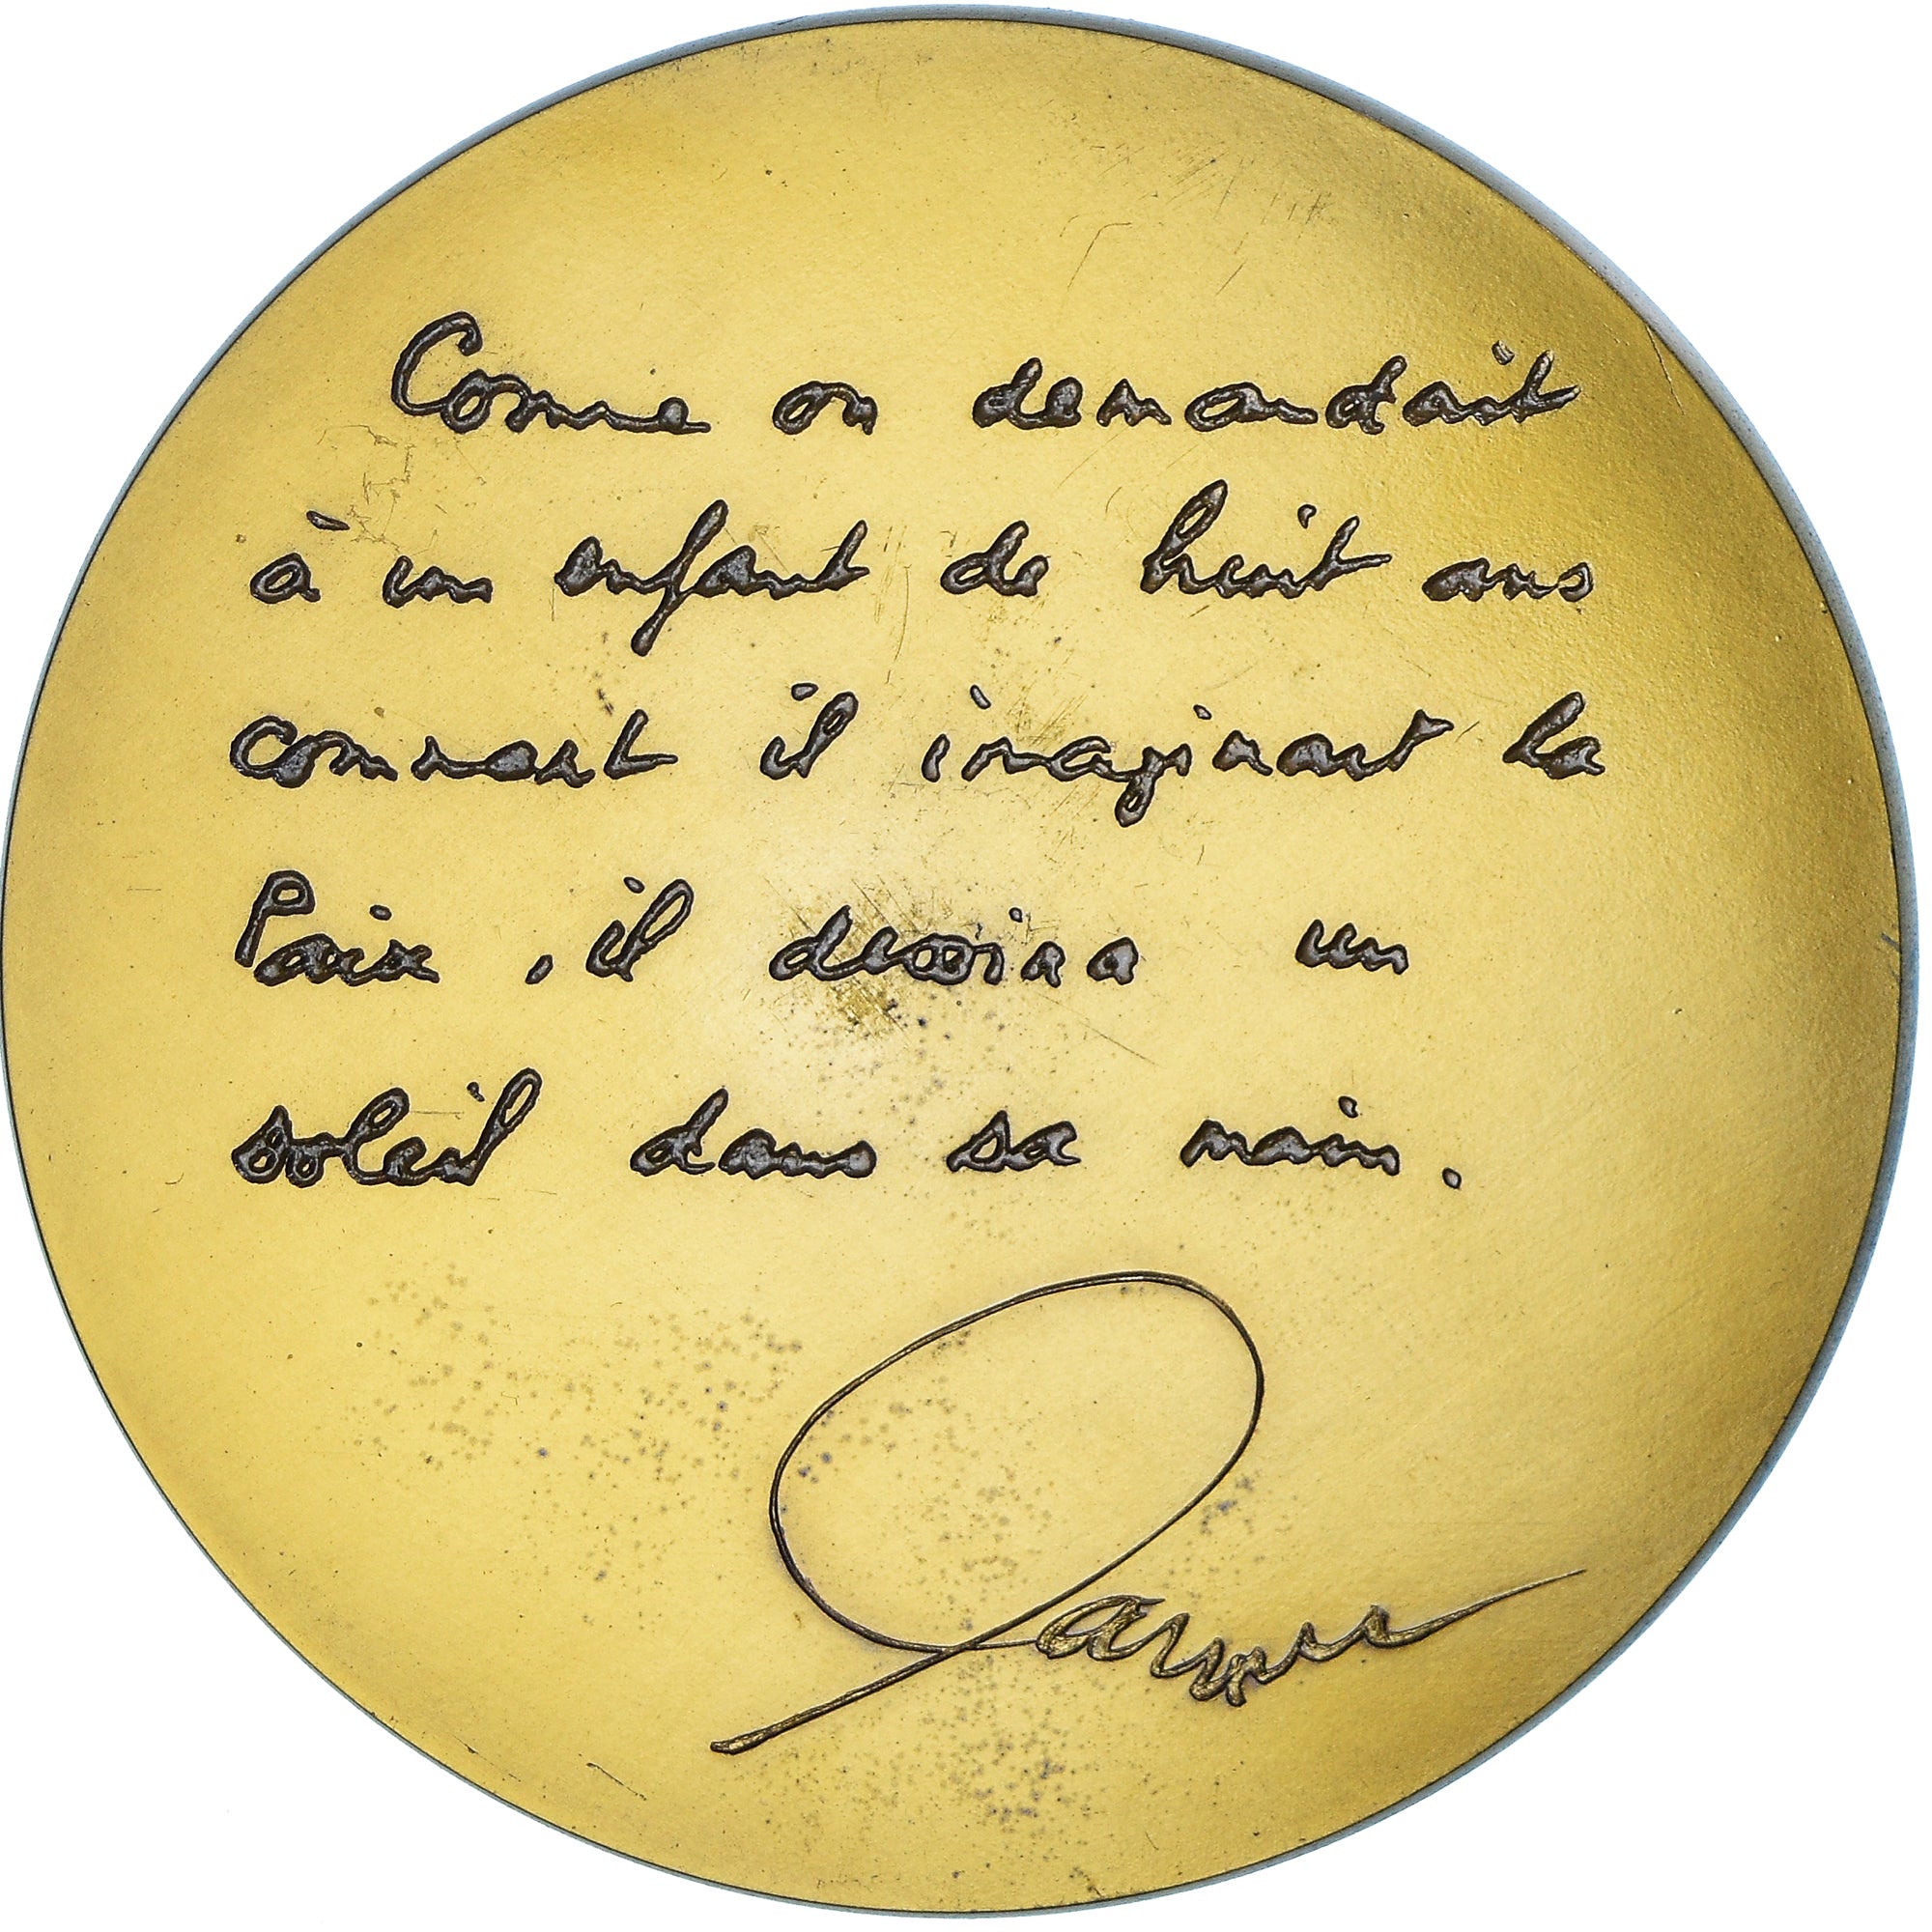 Comme on demandait
à un enfant de huit ans
comment il imaginait la
Paix, il dessina un
soleil dans sa main.